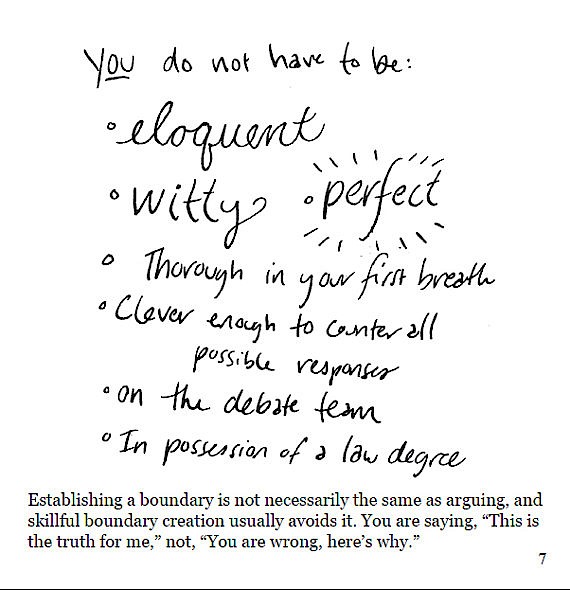 You do not have to be:
• eloquent
• witty • perfect
• Thorough in your first breath
• Clever enough to counter all
possible responses
• on the debate team
• In possession of a law degree
Establishing a boundary is not necessarily the same as arguing, and
skillful boundary creation usually avoids it. You are saying, “This is
the truth for me,” not, “You are wrong, here’s why.”
7